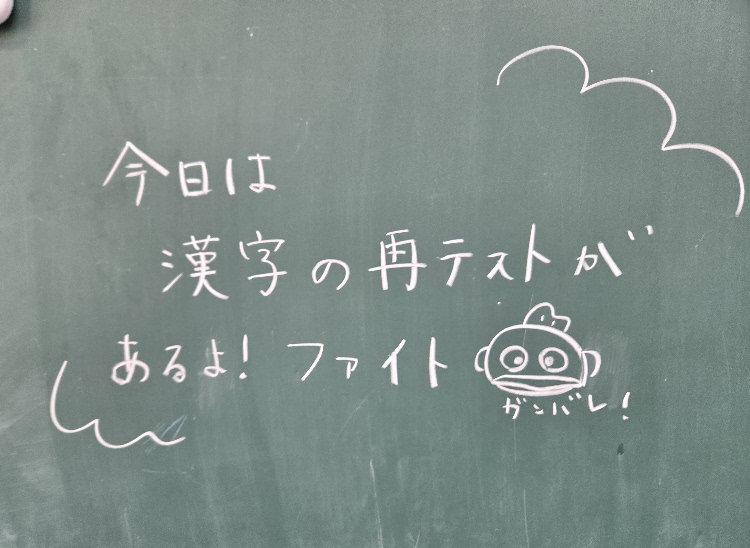 今日は
漢字の再テストが
あるよ！ファイト
ガンバレ！